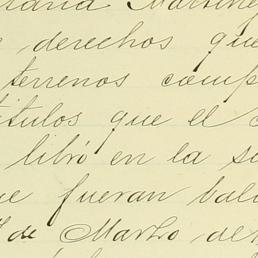 Martine
derechos que
terrenos comp
titulos que el
libró en la s
ue fueran vali
de Marzo de